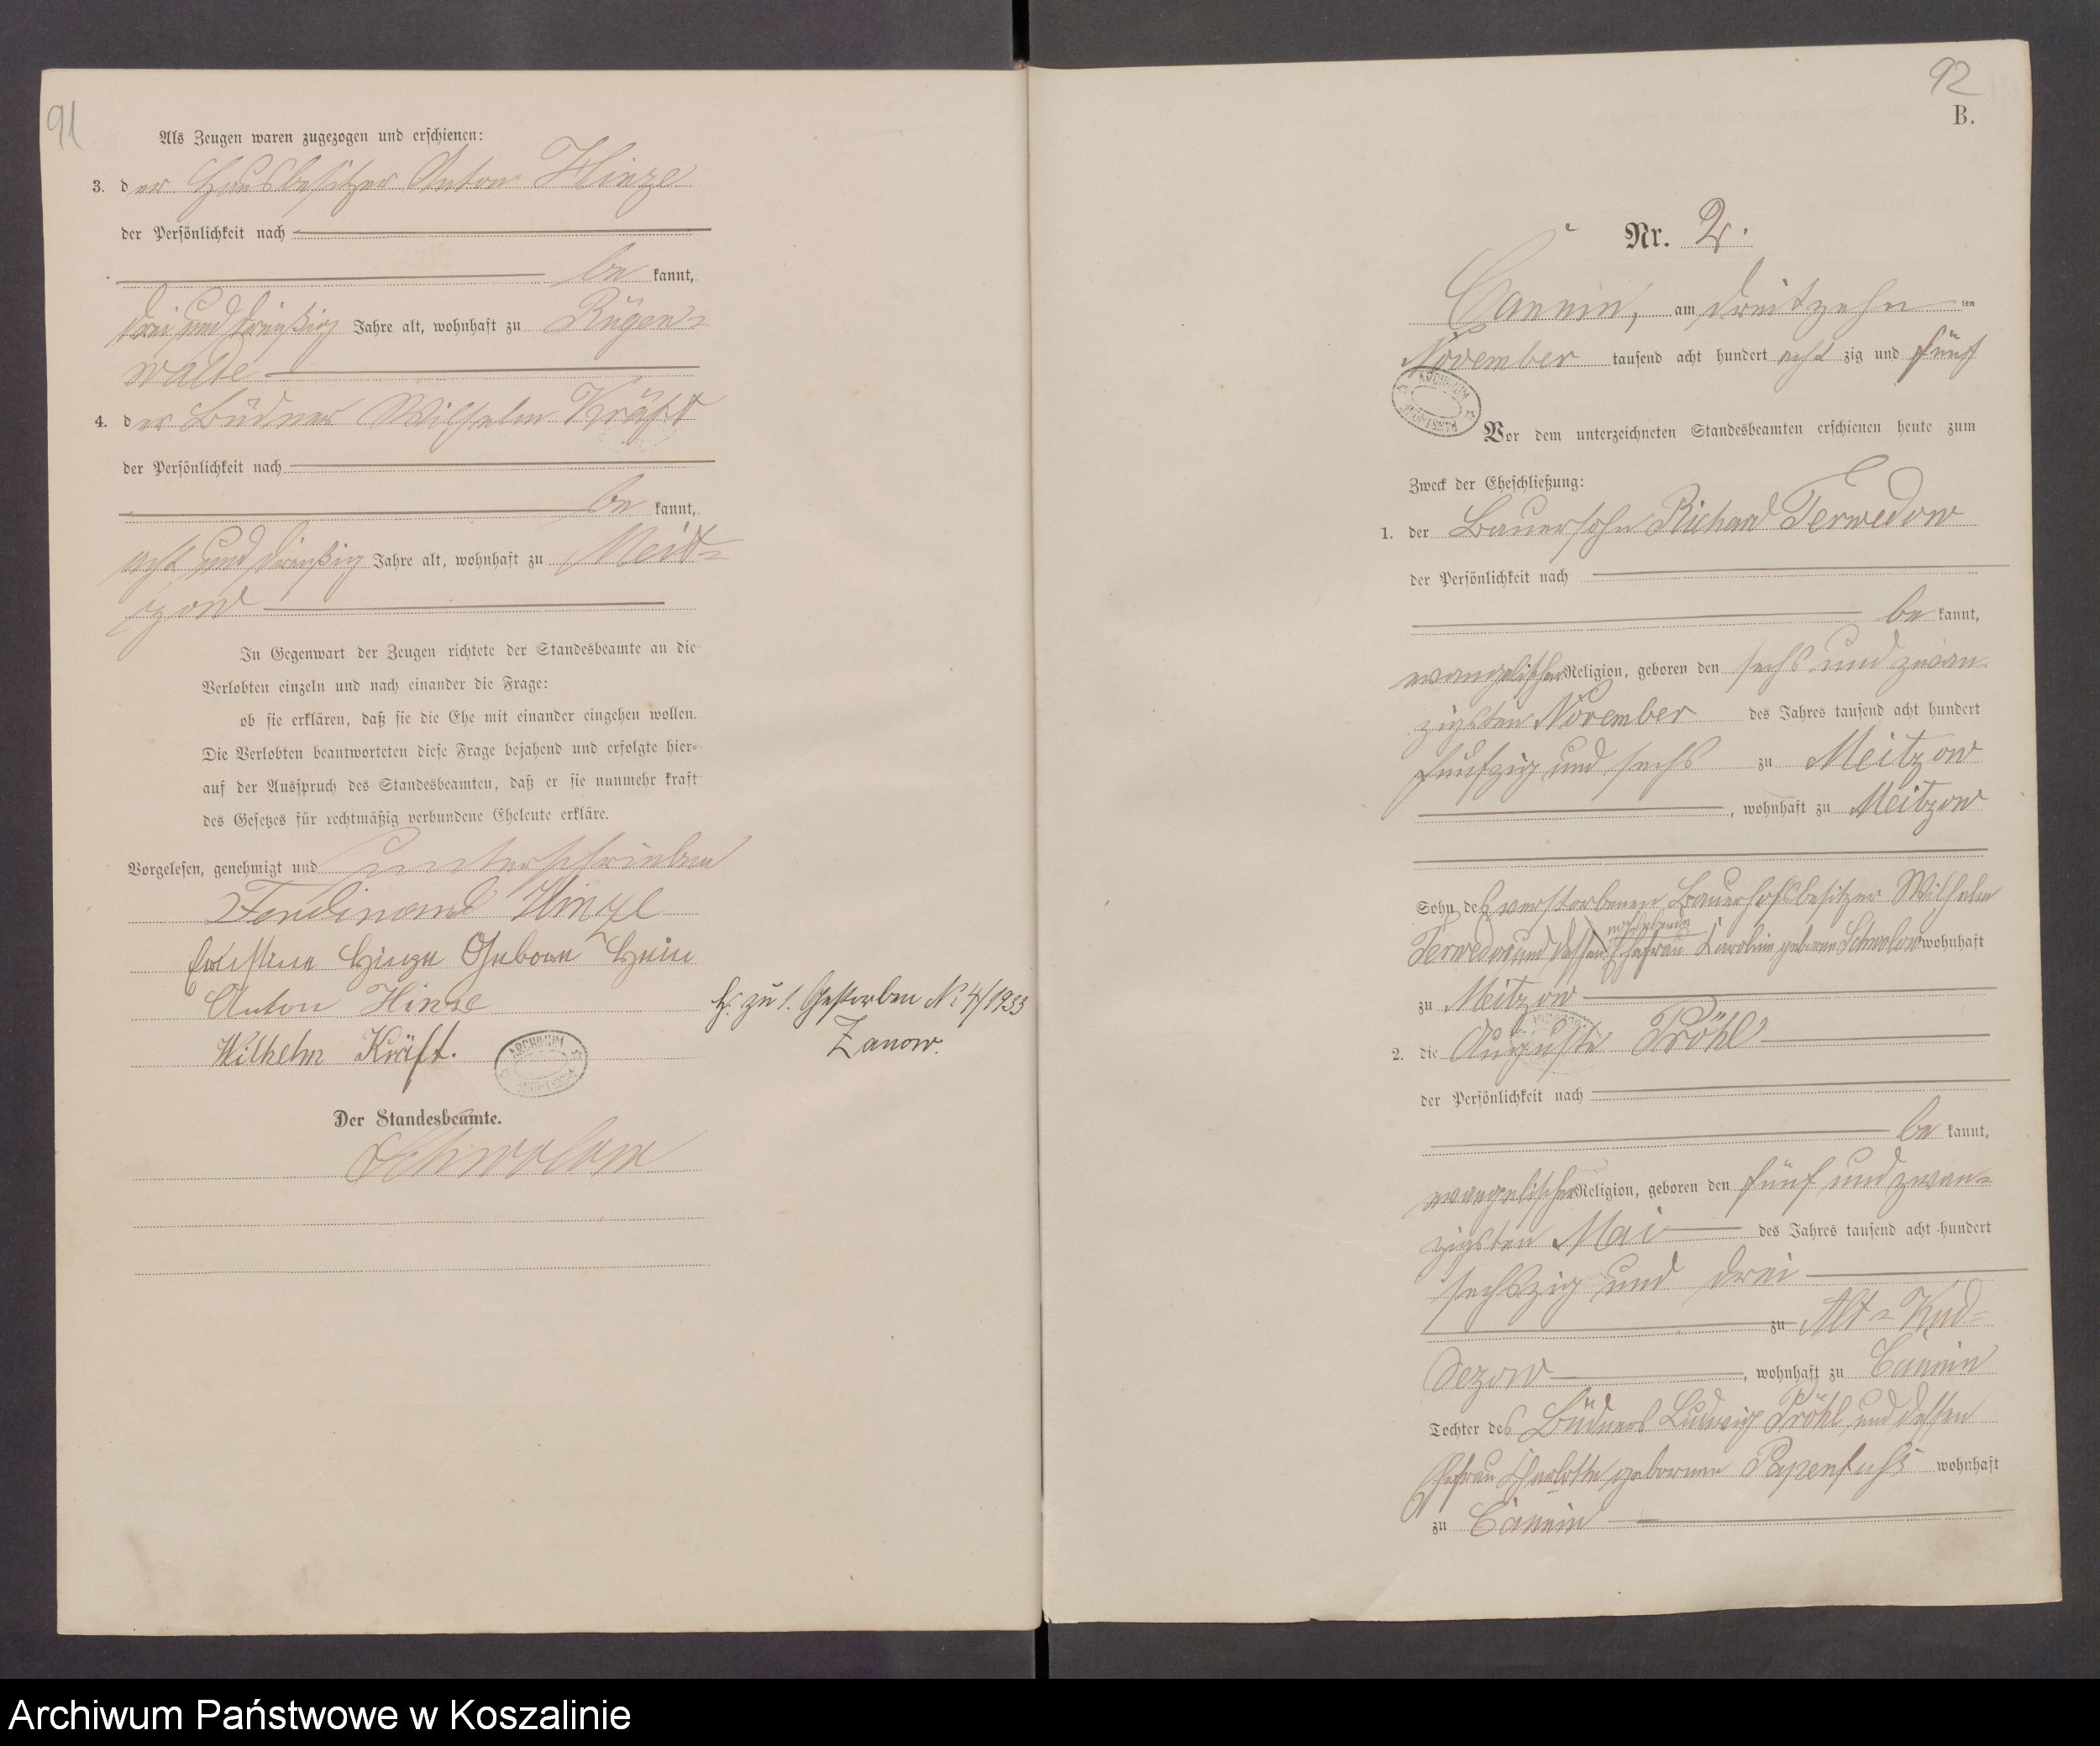 91
Als Zeugen waren zugezogen und erschienen:
3. der Hausbesitzer Anton Hinze
der Persönlichkeit nach
be kannt,
drei und dreißig Jahre alt, wohnhaft zu Rügen=
walde
4. der Büdner Wilhelm Kräft
der Persönlichkeit nach
be kannt,
acht und dreißig Jahre alt, wohnhaft zu Meit=
zow
In Gegenwart der Zeugen richtete der Standesbeamte an die
Verlobten einzeln und nach einander die Frage:
ob sie erklären, daß sie die Ehe mit einander eingehen wollen.
Die Verlobten beantworteten diese Frage bejahend und erfolgte hier=
auf der Ausspruch des Standesbeamten, daß er sie nunmehr kraft
des Gesetzes für rechtmäßig verbundene Eheleute erkläre.
Vorgelesen, genehmigt und unterschrieben
Ferdinand Hinze
Hinze Geborne
Anton Hinze
H. zu 1. Gestorben Nr 4/1933
Zanow.
Wilhelm Kräft.
ARCHIWUM
Der Standesbeamte.
Schwolow
92
B.
Nr. 2.
Cannin, am dreitzehn ten
November tausend acht hundert acht zig und fünf
ARCHIWUM
Vor dem unterzeichneten Standesbeamten erschienen heute zum
Zweck der Eheschließung:
1. der Bauersohn Richard Terwedow
der Persönlichkeit nach
be kannt,
evangelischer Religion, geboren den sechs und zwan=
zigsten November des Jahres tausend acht hundert
fünfzig und sechs zu Meitzow
, wohnhaft zu Meitzow
Sohn des verstorbenen Bauerhofsbesitzer Wilhelm
Terwedow und dessen Ehefrau Karoline geborene Schwolow wohnhaft
zu Meitzow
2. die Auguste Pröhl
der Persönlichkeit nach
be kannt,
evangelischer Religion, geboren den fünf und zwan=
zigsten Mai des Jahres tausend acht hundert
sechszig und drei
zu Alt=Kud=
dezow, wohnhaft zu Cannin
Tochter des Büdners Ludwig Pröhl und dessen
Ehefrau Charlotte geborenen Papenfuhs wohnhaft
zu Cannin
Archiwum Państwowe w Koszalinie